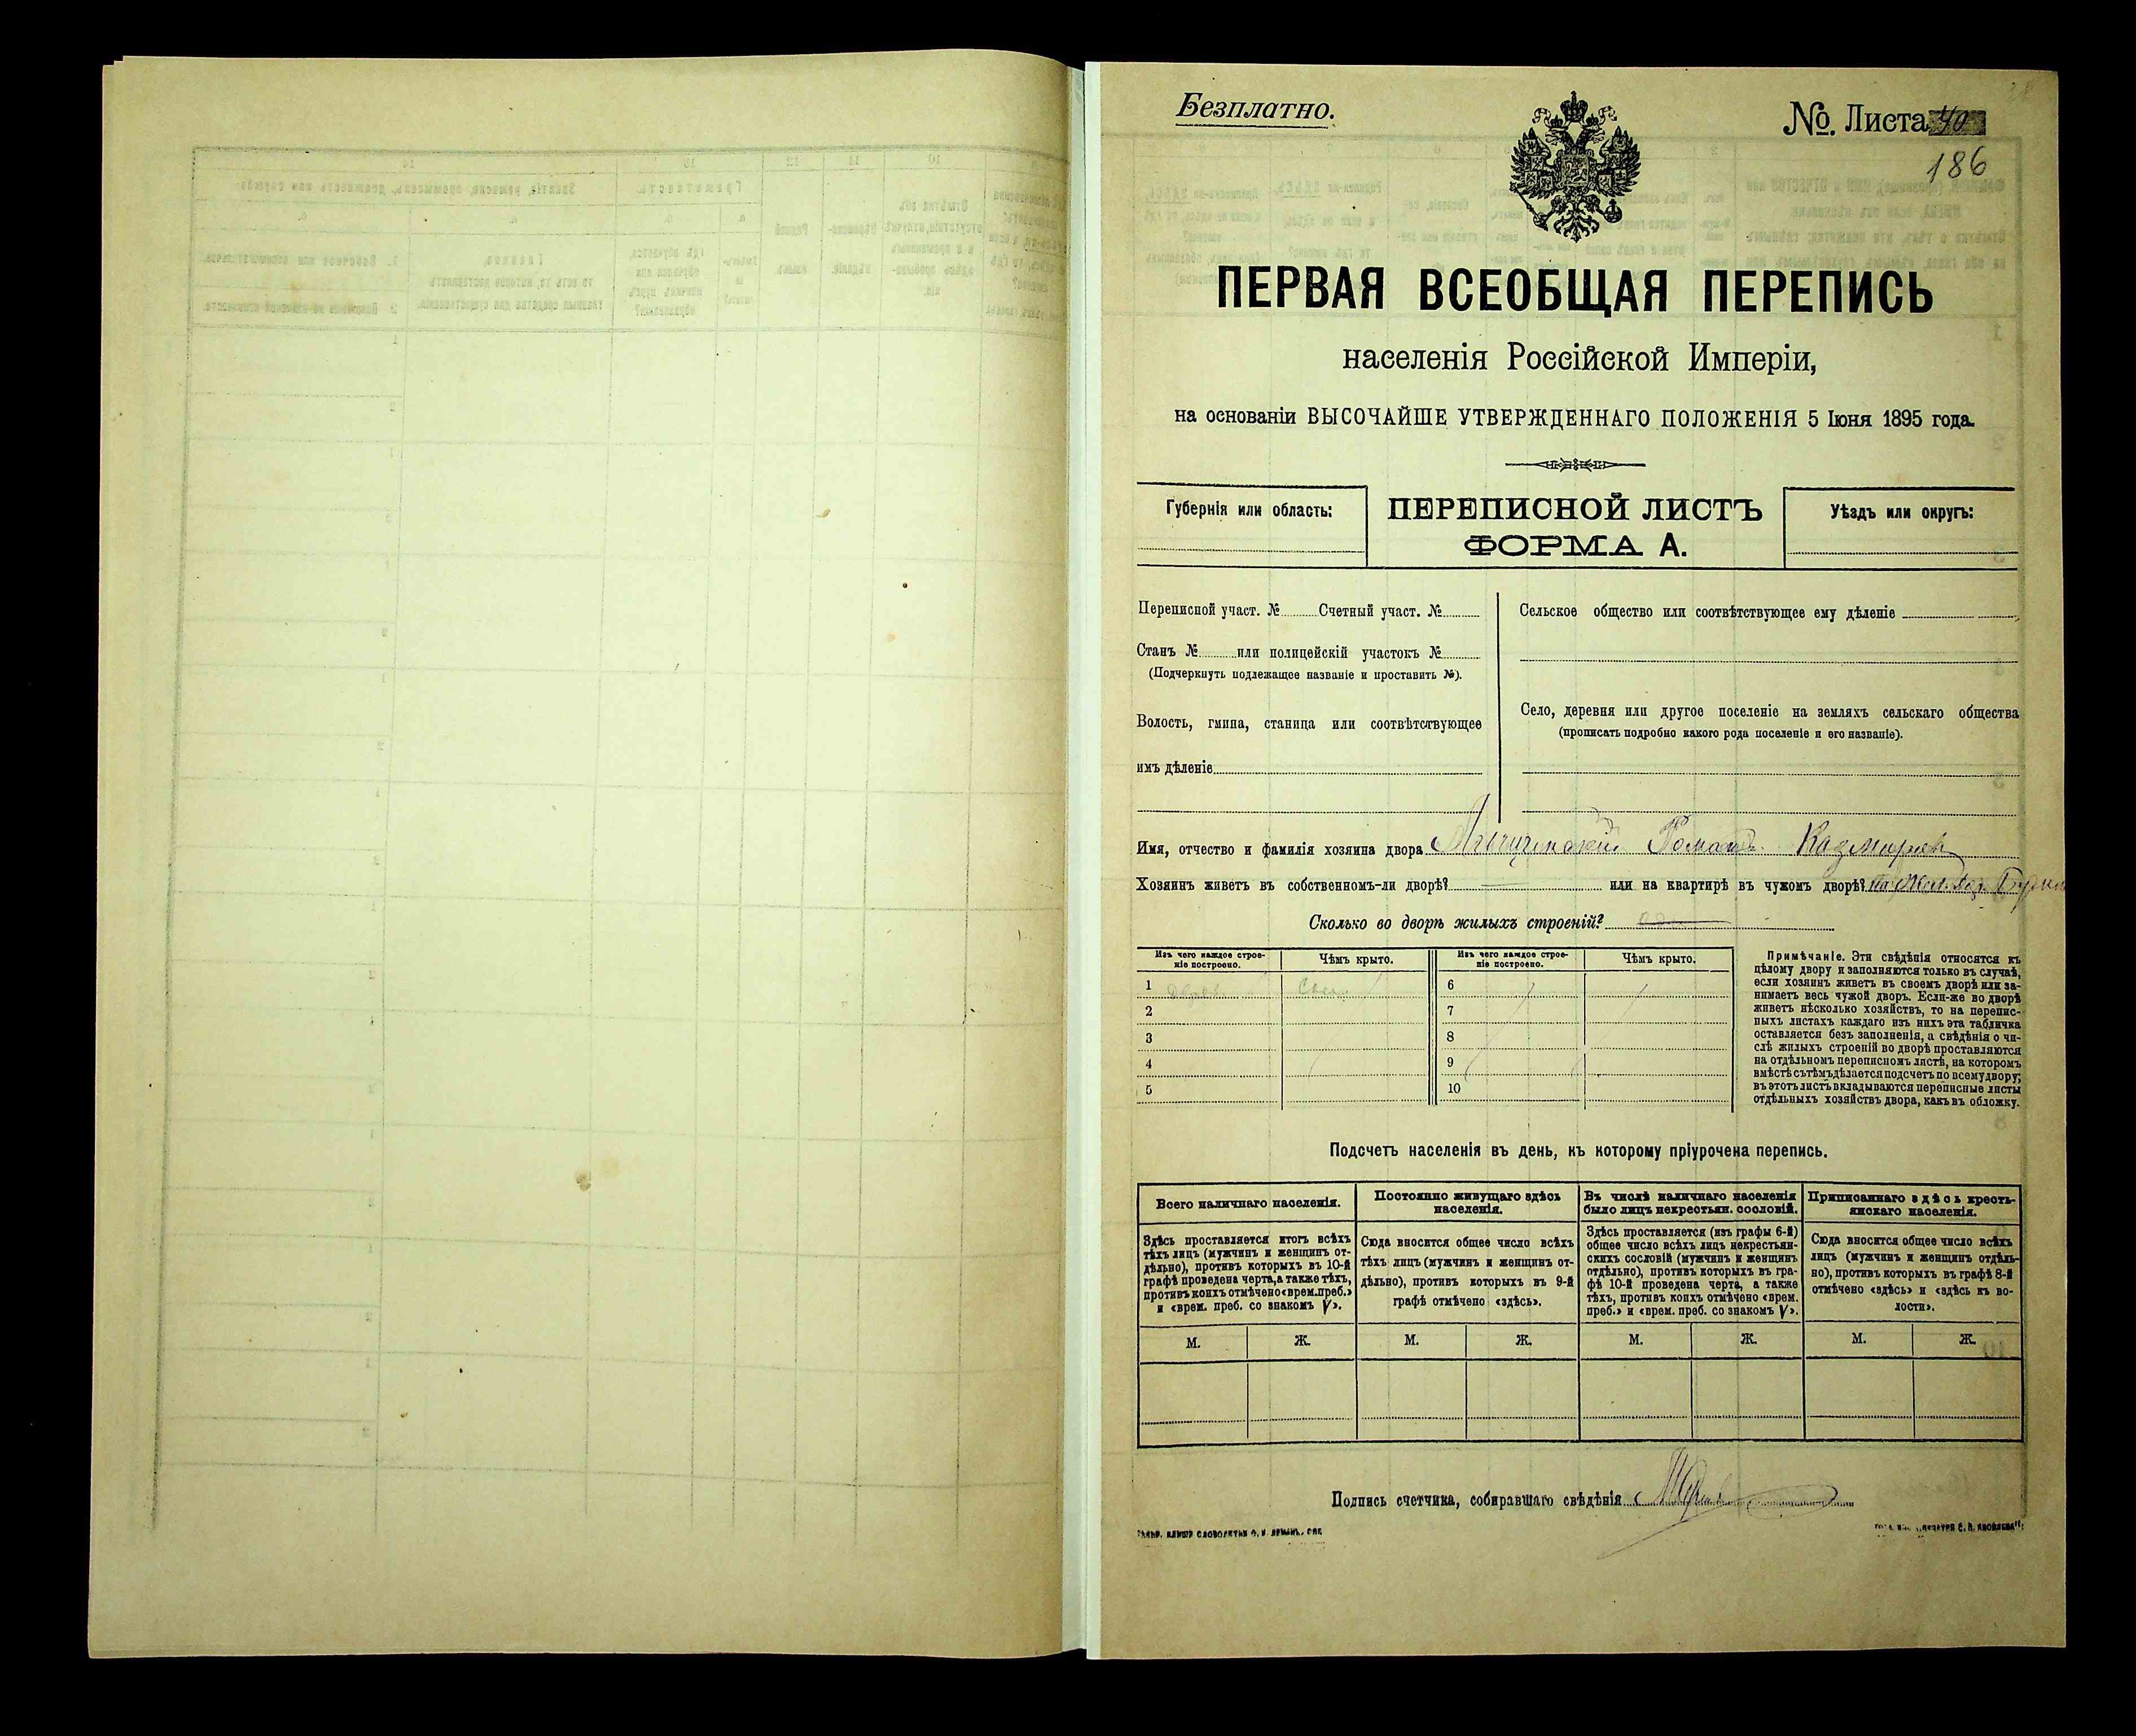 Безплатно.
№. Листа 40
186
ПЕРВАЯ ВСЕОБЩАЯ ПЕРЕПИСЬ
населенія Россійской Имперіи,
на основаніи ВЫСОЧАЙШЕ УТВЕРЖДЕННАГО ПОЛОЖЕНІЯ 5 Іюня 1895 года.
Губернія или область:
ПЕРЕПИСНОЙ ЛИСТЪ
ФОРМА А.
Уѣздъ или округъ:
Переписной участ. № Счетный участ. №
Станъ № или полицейскій участокъ №
(Подчеркнуть подлежащее названіе и проставить №).
Волость, гмина, станица или соотвѣтствующее
имъ дѣленіе
Сельское общество или соотвѣтствующее ему дѣленіе
Село, деревня или другое поселеніе на земляхъ сельскаго общества
(прописать подробно какого рода поселеніе и его названіе).
Имя, отчество и фамилія хозяина двора Романъ Казмиров
Хозяинъ живетъ въ собственномъ-ли дворѣ? или на квартирѣ въ чужомъ дворѣ?
Сколько во дворѣ жилыхъ строеній?
Изъ чего каждое строе-
ніе построено.
Чѣмъ крыто.
Изъ чего каждое строе-
ніе построено.
Чѣмъ крыто.
1
2
3
4
5
6
7
8
9
10
Примѣчаніе. Эти свѣдѣнія относятся къ
цѣлому двору и заполняются только въ случаѣ,
если хозяинъ живетъ въ своемъ дворѣ или за-
нимаетъ весь чужой дворъ. Если-же во дворѣ
живетъ нѣсколько хозяйствъ, то на перепис-
ныхъ листахъ каждаго изъ нихъ эта табличка
оставляется безъ заполненія, а свѣдѣнія о чи-
слѣ жилыхъ строеній во дворѣ проставляются
на отдѣльномъ переписномъ листѣ, на которомъ
вмѣстѣ съ тѣмъ дѣлается подсчетъ по всему двору;
въ этотъ листъ вкладываются переписные листы
отдѣльныхъ хозяйствъ двора, какъ въ обложку.
Подсчетъ населенія въ день, къ которому пріурочена перепись.
Всего наличнаго населенія.
Здѣсь проставляется итогъ всѣхъ
тѣхъ лицъ (мужчинъ и женщинъ от-
дѣльно), противъ которыхъ въ 10-й
графѣ проведена черта, а также тѣхъ,
противъ коихъ отмѣчено «врем. преб.»
и «врем. преб. со знакомъ V».
Постоянно живущаго здѣсь
населенія.
Сюда вносится общее число всѣхъ
тѣхъ лицъ (мужчинъ и женщинъ от-
дѣльно), противъ которыхъ въ 9-й
графѣ отмѣчено «здѣсь».
Въ числѣ наличнаго населенія
было лицъ некрестьян. сословій.
Здѣсь проставляется (изъ графы 6-й)
общее число всѣхъ лицъ некрестьян-
скихъ сословій (мужчинъ и женщинъ
отдѣльно), противъ которыхъ въ гра-
фѣ 10-й проведена черта, а также
тѣхъ, противъ коихъ отмѣчено «врем.
преб.» и «врем. преб. со знакомъ V».
Приписаннаго здѣсь кресть-
янскаго населенія.
Сюда вносится общее число всѣхъ
лицъ (мужчинъ и женщинъ отдѣль-
но), противъ которыхъ въ графѣ 8-й
отмѣчено «здѣсь» и «здѣсь къ во-
лости».
М. Ж. М. Ж. М. Ж. М. Ж.
Подпись счетчика, собиравшаго свѣдѣнія